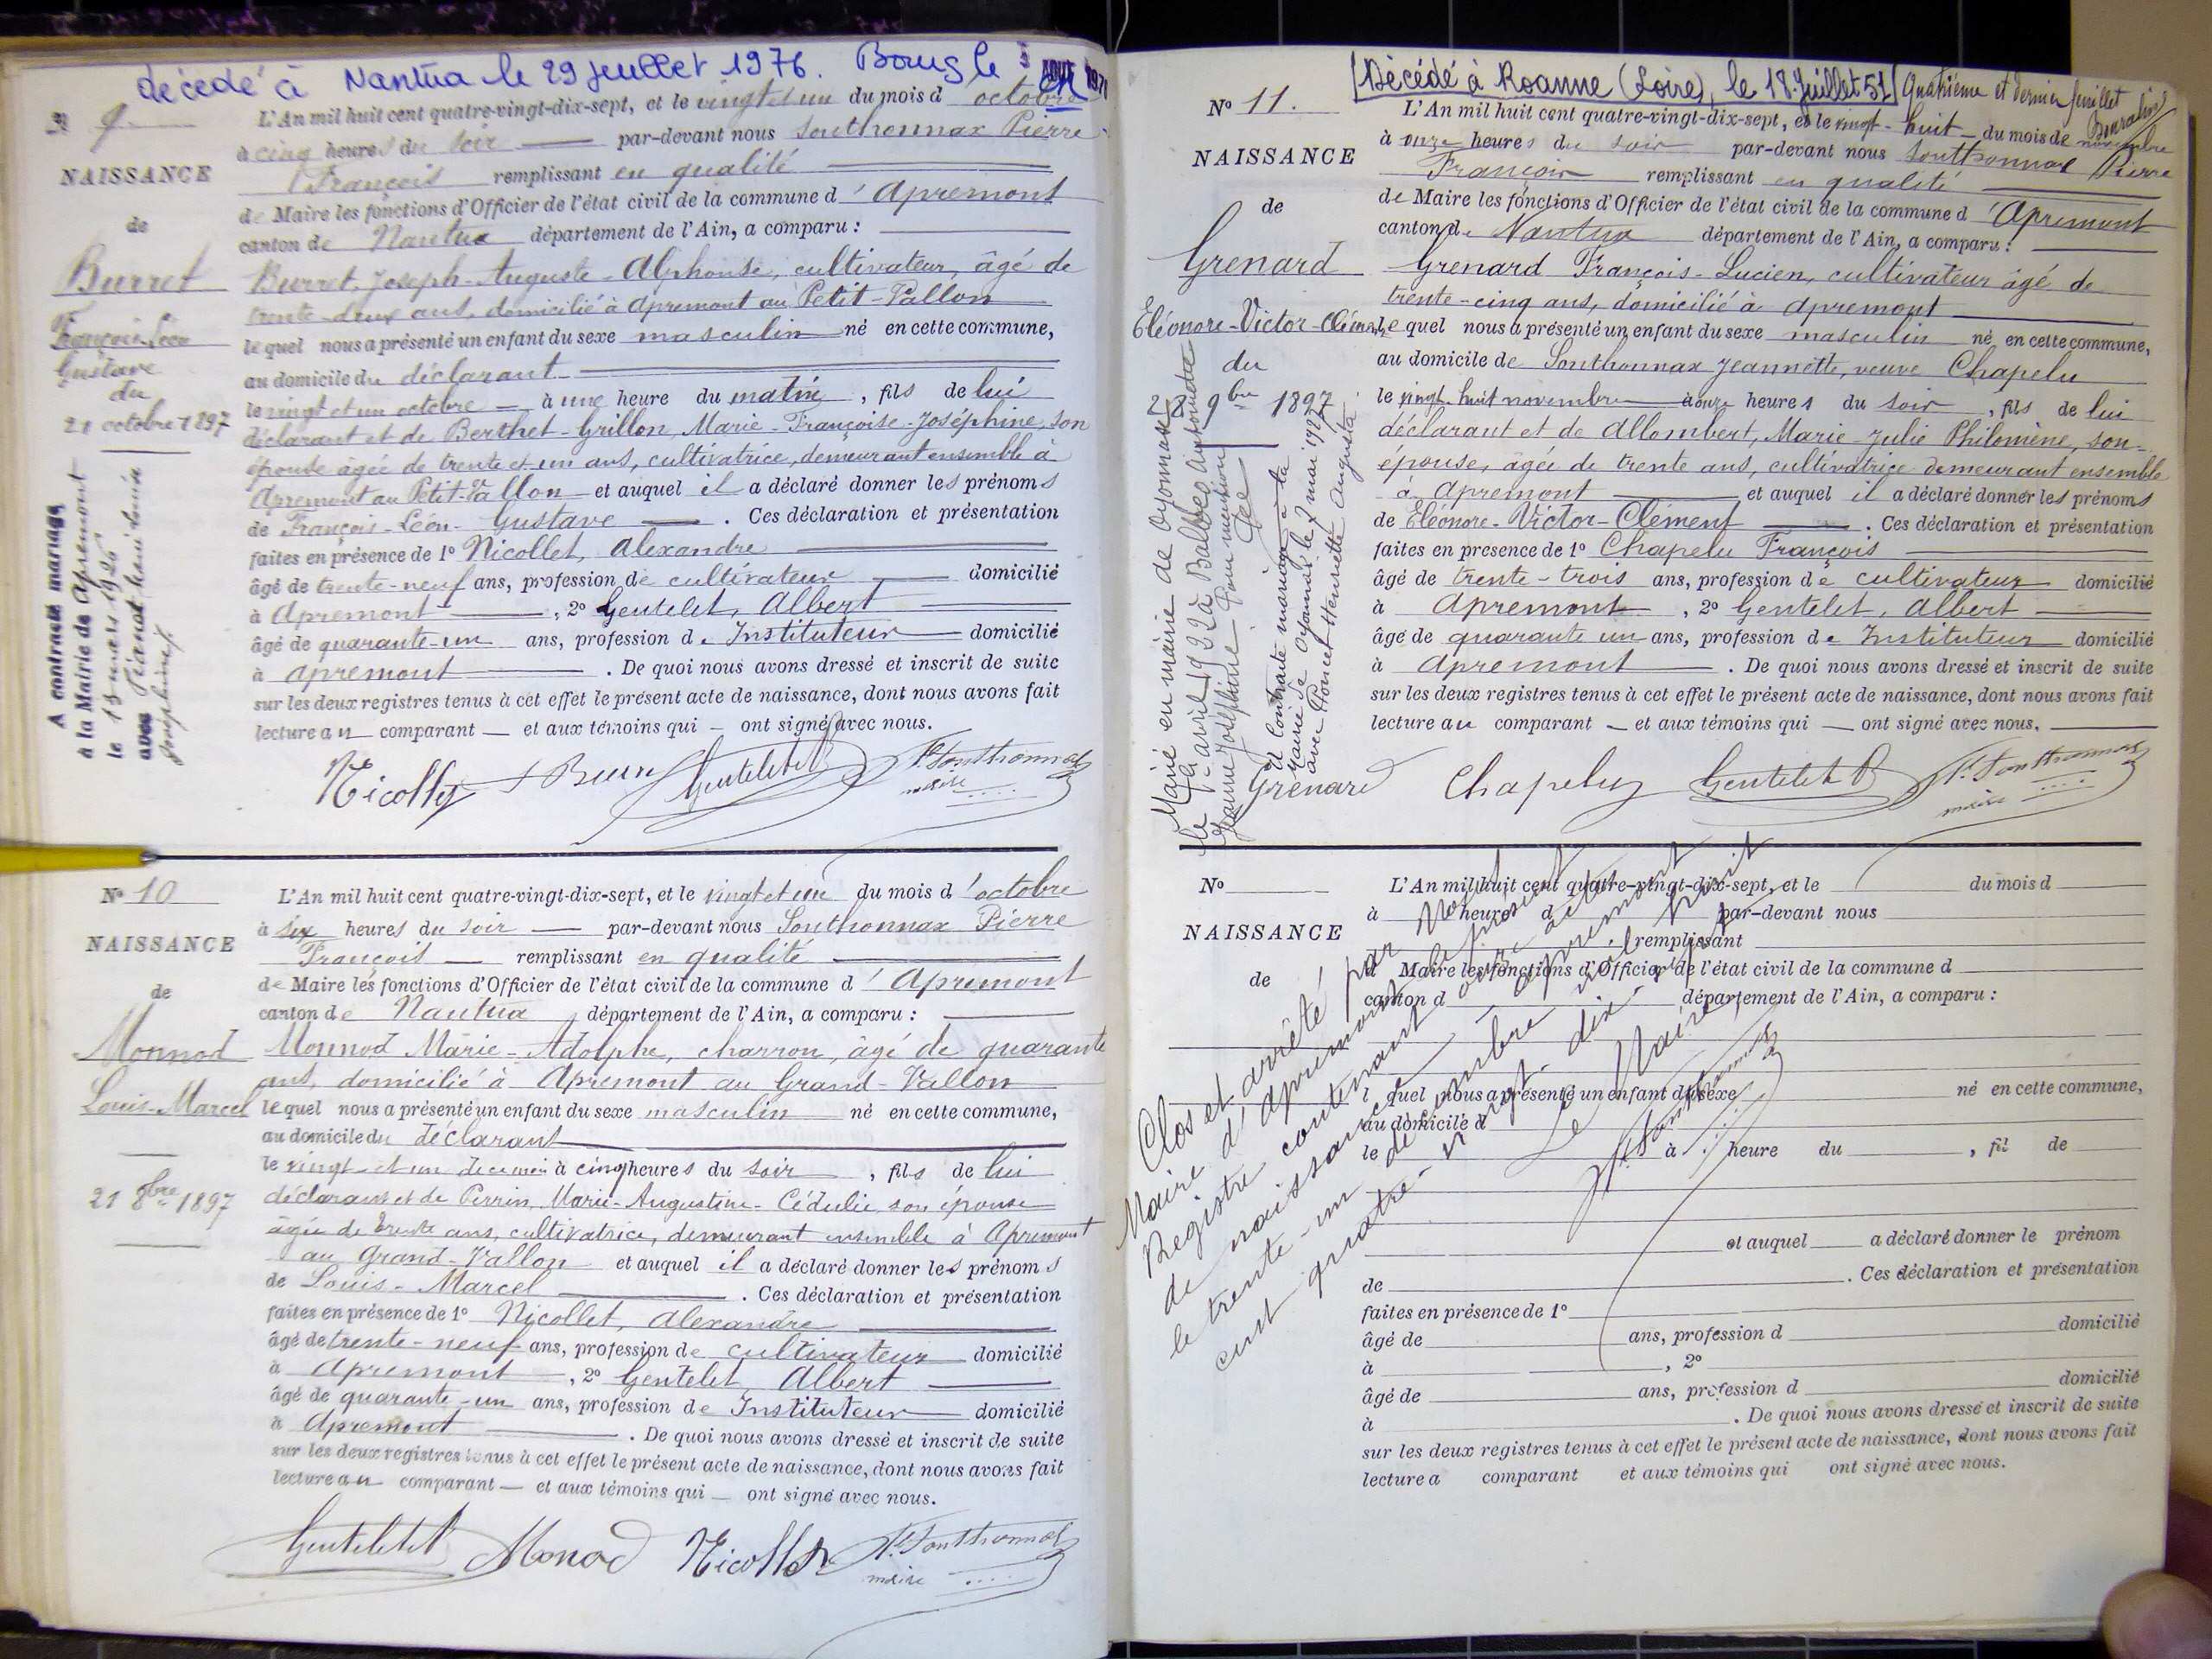 décédé à Nantua le 29 juillet 1976. Bourg le 5 AOUT 1976
N° 9
NAISSANCE
de
Burret
François Léon
Gustave
du
21 octobre 1897
A contracté mariage
à la Mairie de Apremont
le 13 mars 1926
avec
Joséphine
L'An mil huit cent quatre-vingt-dix-sept, et le vingt et un du mois d'octobre
à cinq heures du soir par-devant nous Sonthonnax Pierre
François remplissant en qualité
de Maire les fonctions d'Officier de l'état civil de la commune d'Apremont
canton de Nantua département de l'Ain, a comparu :
Burret, Joseph-Auguste-Alphonse, cultivateur, âgé de
trente-deux ans, domicilié à Apremont au Petit-Vallon
lequel nous a présenté un enfant du sexe masculin né en cette commune,
au domicile du déclarant
le vingt et un octobre à une heure du matin, fils de lui
déclarant et de Berthet-Grillon, Marie-Françoise-Joséphine, son
épouse âgée de trente et un ans, cultivatrice, demeurant ensemble à
Apremont au Petit-Vallon et auquel il a déclaré donner les prénoms
de François-Léon-Gustave. Ces déclaration et présentation
faites en présence de 1° Nicollet, Alexandre
âgé de trente-neuf ans, profession de cultivateur domicilié
à Apremont, 2° Gentelet, Albert
âgé de quarante-un ans, profession de Instituteur domicilié
à Apremont. De quoi nous avons dressé et inscrit de suite
sur les deux registres tenus à cet effet le présent acte de naissance, dont nous avons fait
lecture au comparant et aux témoins qui ont signé avec nous.
Nicollet Burret Gentelet A Pre Sonthonnax
maire
N° 10
NAISSANCE
de
Monnod
Louis-Marcel
21 8bre 1897
L'An mil huit cent quatre-vingt-dix-sept, et le vingt et un du mois d'octobre
à six heures du soir par-devant nous Sonthonnax Pierre
François remplissant en qualité
de Maire les fonctions d'Officier de l'état civil de la commune d'Apremont
canton de Nantua département de l'Ain, a comparu :
Monnod Marie-Adolphe, charron, âgé de quarante
ans, domicilié à Apremont au Grand-Vallon
lequel nous a présenté un enfant du sexe masculin né en cette commune,
au domicile du déclarant
le vingt-et un à cinq heures du soir, fils de lui
déclarant et de Perrin, Marie-Augustine-Cédulie, son épouse
âgée de trente ans, cultivatrice, demeurant ensemble à Apremont
au Grand-Vallon et auquel il a déclaré donner les prénoms
de Louis-Marcel. Ces déclaration et présentation
faites en présence de 1° Nicollet, Alexandre
âgé de trente-neuf ans, profession de cultivateur domicilié
à Apremont, 2° Gentelet, Albert
âgé de quarante-un ans, profession de Instituteur domicilié
à Apremont. De quoi nous avons dressé et inscrit de suite
sur les deux registres tenus à cet effet le présent acte de naissance, dont nous avons fait
lecture au comparant et aux témoins qui ont signé avec nous.
Gentelet A Monod Nicollet Pre Sonthonnax
maire
[Décédé à Roanne (Loire), le 18 juillet 51] Quatrième et dernier feuillet
N° 11.
NAISSANCE
de
Grenard
Eléonore-Victor-Clément
du
28 9bre 1897
Marié en mairie de Oyonnax
le avril 1932 à
Jeanne Joséphine Pour mention
A contracté mariage à la
mairie de Oyonnax le 7 mai 192
avec Poncet Henriette Augusta
L'An mil huit cent quatre-vingt-dix-sept, et le vingt-huit du mois de novembre
à onze heures du soir par-devant nous Sonthonnax Pierre
François remplissant en qualité
de Maire les fonctions d'Officier de l'état civil de la commune d'Apremont
canton de Nantua département de l'Ain, a comparu :
Grenard François-Lucien, cultivateur âgé de
trente-cinq ans, domicilié à Apremont
lequel nous a présenté un enfant du sexe masculin né en cette commune,
au domicile de Sonthonnax Jeannette, veuve Chapelu
le vingt-huit novembre à onze heures du soir, fils de lui
déclarant et de Allombert, Marie-Julie Philomène, son-
épouse, âgée de trente ans, cultivatrice demeurant ensemble
à Apremont et auquel il a déclaré donner les prénoms
de Eléonore-Victor-Clément. Ces déclaration et présentation
faites en présence de 1° Chapelu François
âgé de trente-trois ans, profession de cultivateur domicilié
à Apremont, 2° Gentelet, Albert
âgé de quarante un ans, profession de Instituteur domicilié
à Apremont. De quoi nous avons dressé et inscrit de suite
sur les deux registres tenus à cet effet le présent acte de naissance, dont nous avons fait
lecture au comparant et aux témoins qui ont signé avec nous.
Grenard Chapelu Gentelet A Pre Sonthonnax
maire
N°
NAISSANCE
de
L'An mil huit cent quatre-vingt-dix-sept, et le du mois d
à heures d par-devant nous
remplissant
d Maire les fonctions d'Officier de l'état civil de la commune d
canton d département de l'Ain, a comparu :
l quel nous a présenté un enfant du sexe né en cette commune,
au domicile d
le à heure du , fil de
et auquel a déclaré donner le prénom
de . Ces déclaration et présentation
faites en présence de 1°
âgé de ans, profession d domicilié
à , 2°
âgé de ans, profession d domicilié
à . De quoi nous avons dressé et inscrit de suite
sur les deux registres tenus à cet effet le présent acte de naissance, dont nous avons fait
lecture a comparant et aux témoins qui ont signé avec nous.
Clos et arrêté par Nous
Maire d'Apremont le présent
Registre contenant onze actes
de naissance Apremont
le trente-un décembre mil huit
cent quatre-vingt-dix-sept
Le Maire,
Pre Sonthonnax